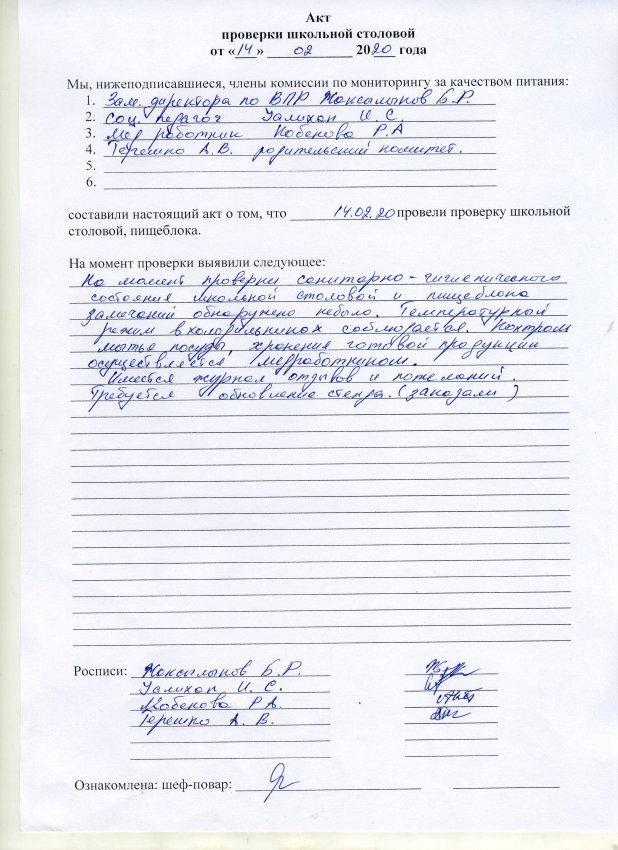 Акт
проверки школьной столовой
от «14» 02 2020 года
Мы, нижеподписавшиеся, члены комиссии по мониторингу за качеством питания:
1. Зам. директора по ВПР Жаксылыков Б.Р.
2. Соц. педагог Уалихан И. С.
3. Мед работник Кобекова Р.А
4. Терешко А.В. родительский комитет.
5.
6.
составили настоящий акт о том, что 14.02.20 провели проверку школьной
столовой, пищеблока.
На момент проверки выявили следующее:
На момент проверки санитарно-гигиенического
состояния школьной столовой и пищеблока
замечаний обнаружено небыло. Температурный
режим в холодильниках соблюдается. Контроль
мытья посуды, хранения готовой продукции
осуществляется медработником.
Имеется журнал отзывов и пожеланий.
Требуется обновление стенда. (заказали)
Росписи: Жаксылыков Б.Р.
Уалихан И. С.
Кобекова Р.А.
Терешко А. В.
Ознакомлена: шеф-повар: